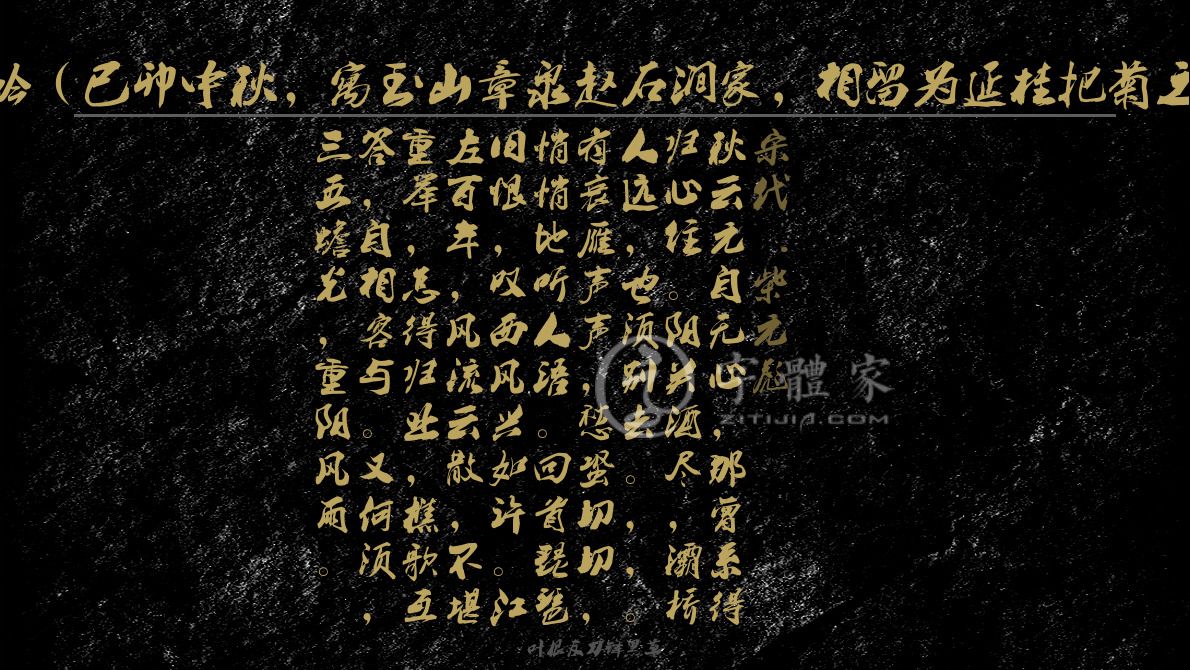 吟（已卯中秋，寓玉山章泉赵石涧家，相留为延桂把菊之
宋代.柴元彪
秋云元自无心，那曾系得
归心住。阳关酒尽，灞桥
人远，也须别去。，，。
有哀雁声声，愁蛩切切，
悄悄地听人语。回首琵琶
旧恨，叹西风兴如许。江
左百年，风流云散，不堪
重举，怎得归此，樵歌互
答，自相容与。又何须，
三五蟾光，重阳风雨。
字體家
ZITIJIA.COM
叶根友刀锋黑草